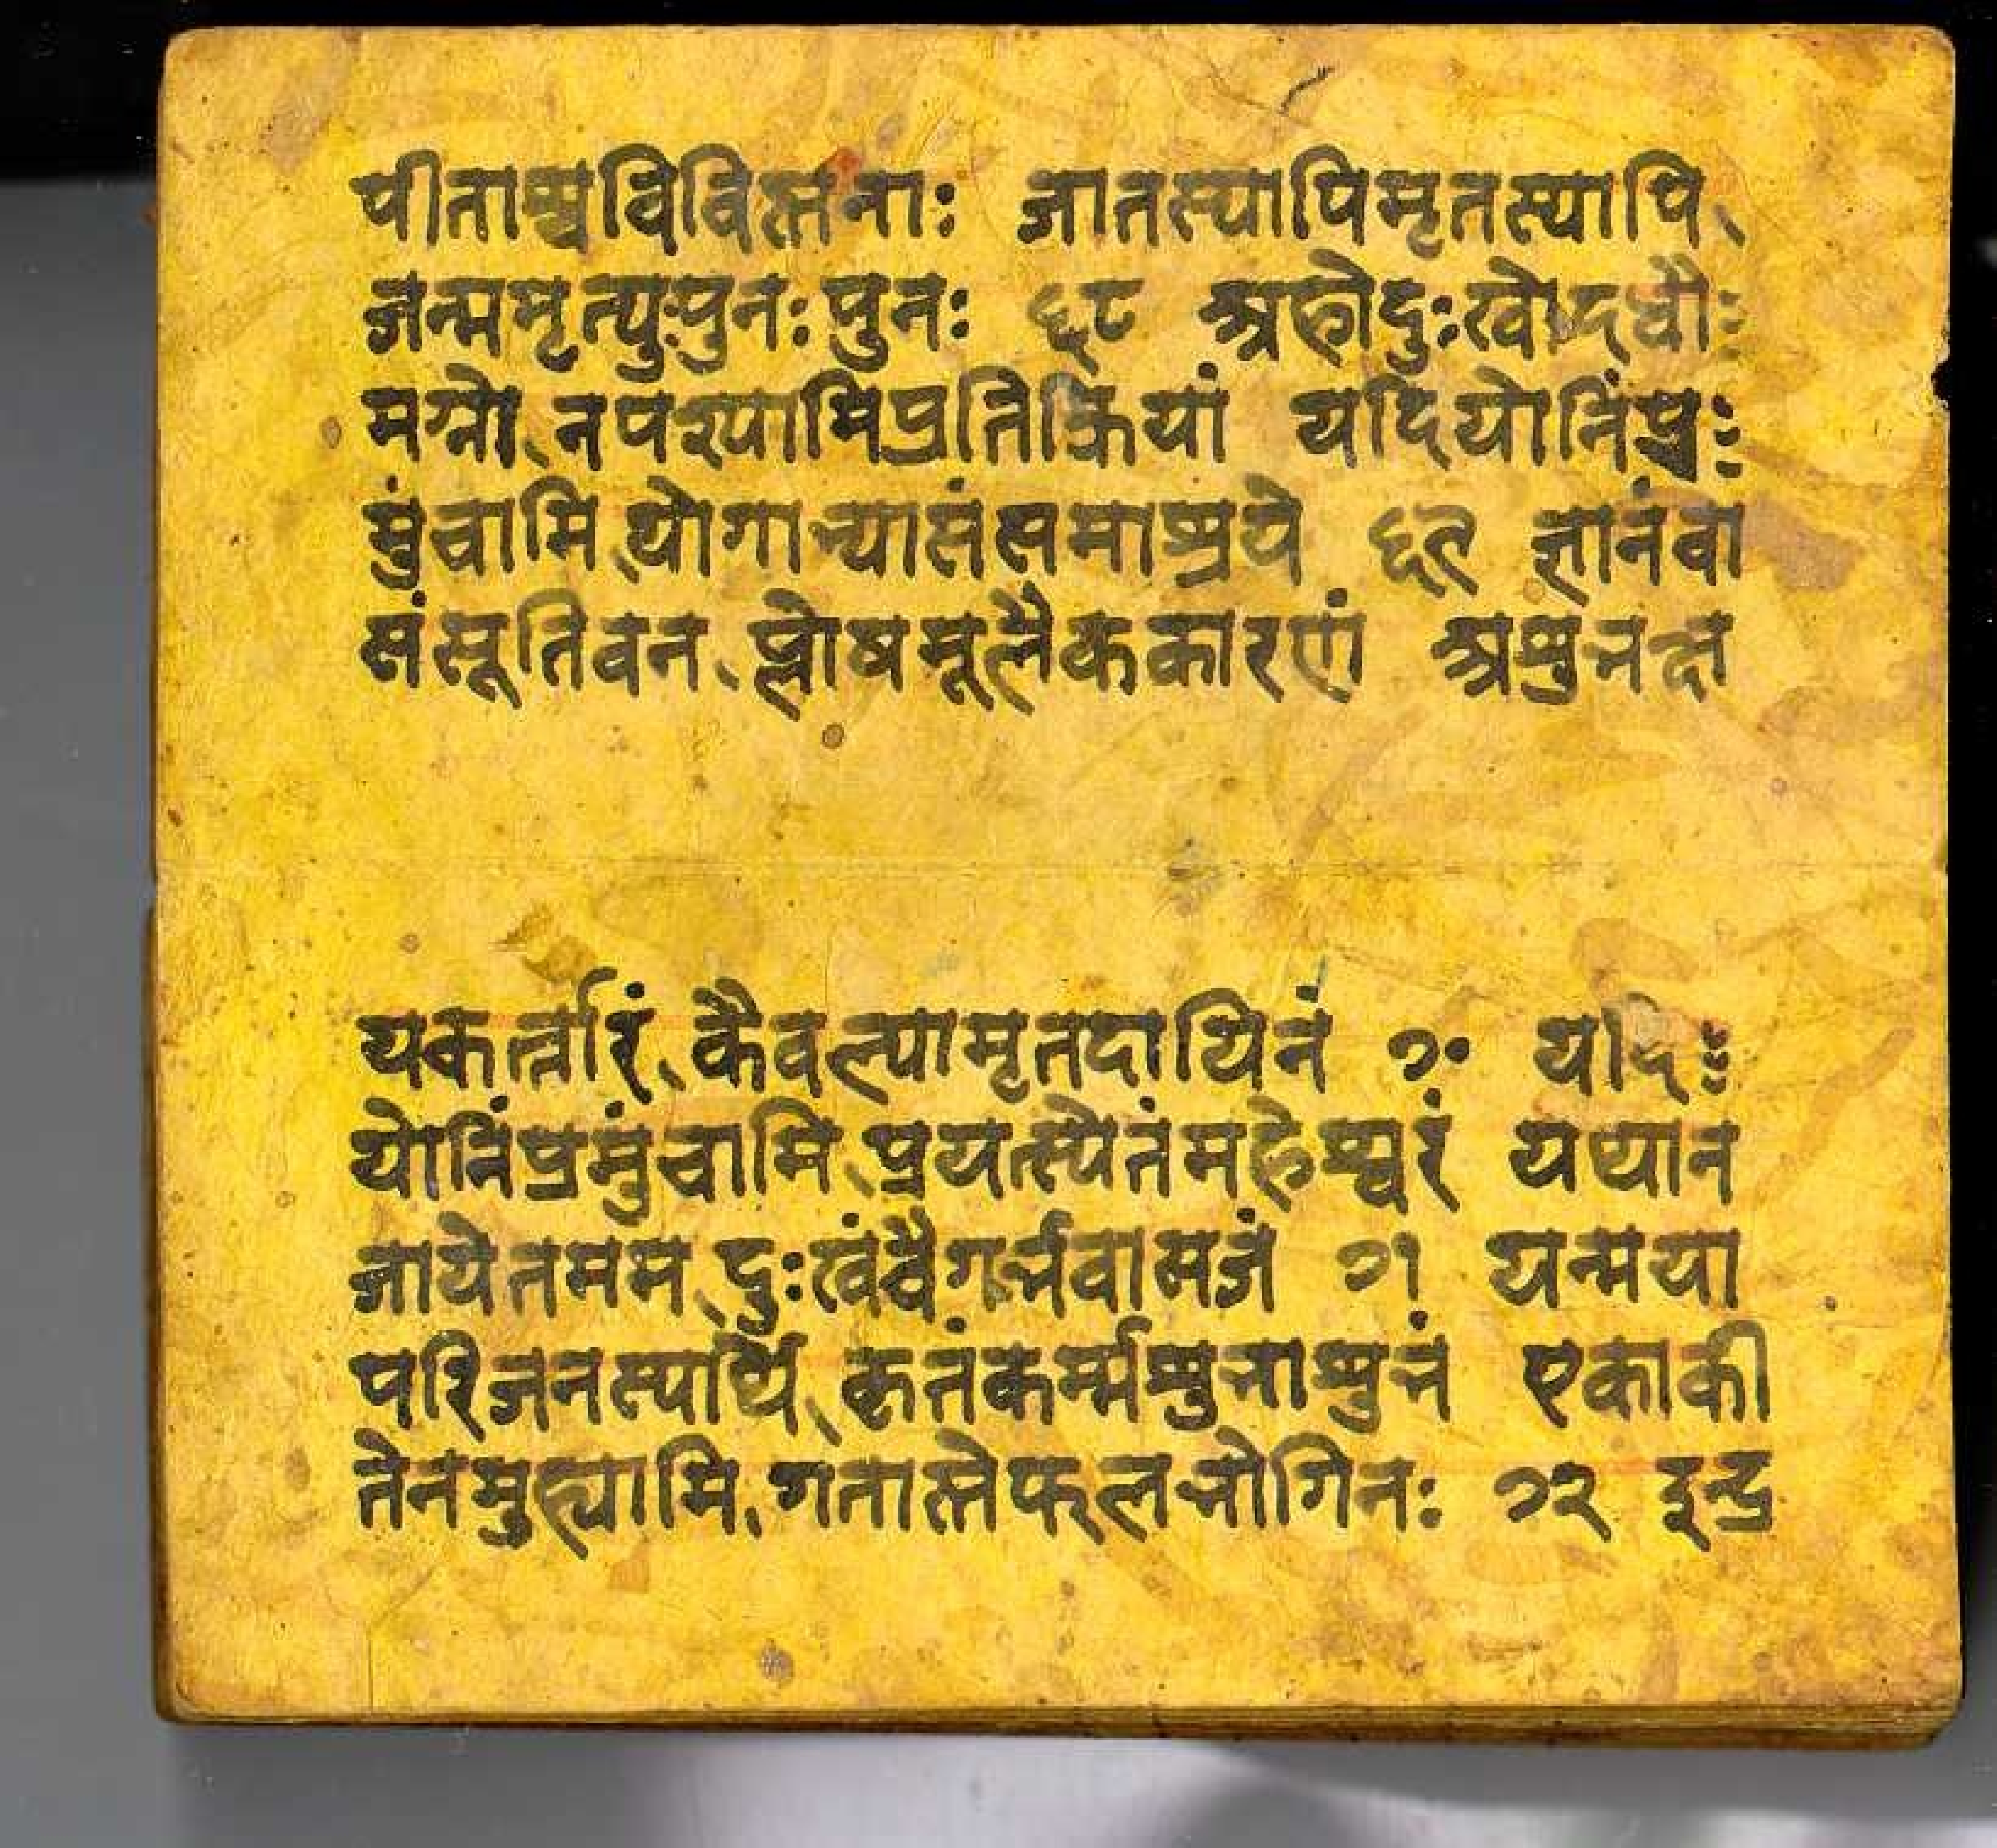 पीताश्चविविस्तनाः जातस्यापिमृतस्यापि
जन्ममृत्युःपुनःपुनः ६८ अहोदुःखोदधौ
मग्नो नपश्यामिप्रतिक्रियां यदियोनिंप्र
मुंचामि योगाभ्यासंसमाश्रये ६९ ज्ञानंवा
संसूतिवन प्लोषमूलैककारणं अशुभक्ष
यकर्त्तारं कैवल्यामृतदायिनं ७० यदि
योनिंप्रमुंचामि प्रयत्स्येतंमहेश्वरं यथान
जायेतमम दुःखंवैगर्भवासजं ७१ यन्मया
परिजनस्यार्थे कृतंकर्म्मशुभाशुभं एकाकी
तेनमुह्यामि गतास्तेफलभोगिनः ७२ इन्द्र